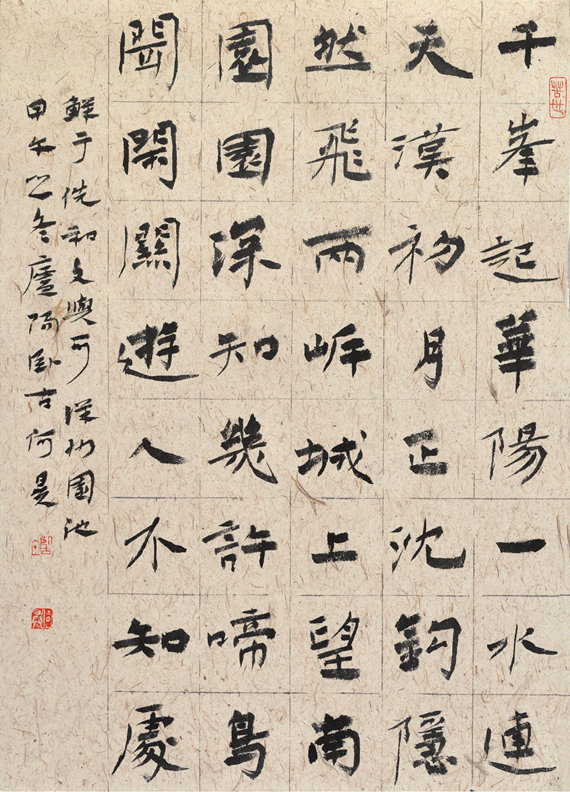 千峯起華陽一水連
天漢初月正沈鈎隱
然飛兩岸城上望南
園園深知幾許啼鳥
聞閑關遊人不知處
鮮于侁和文與可洋州園池
甲午之冬廬陽臥古何是